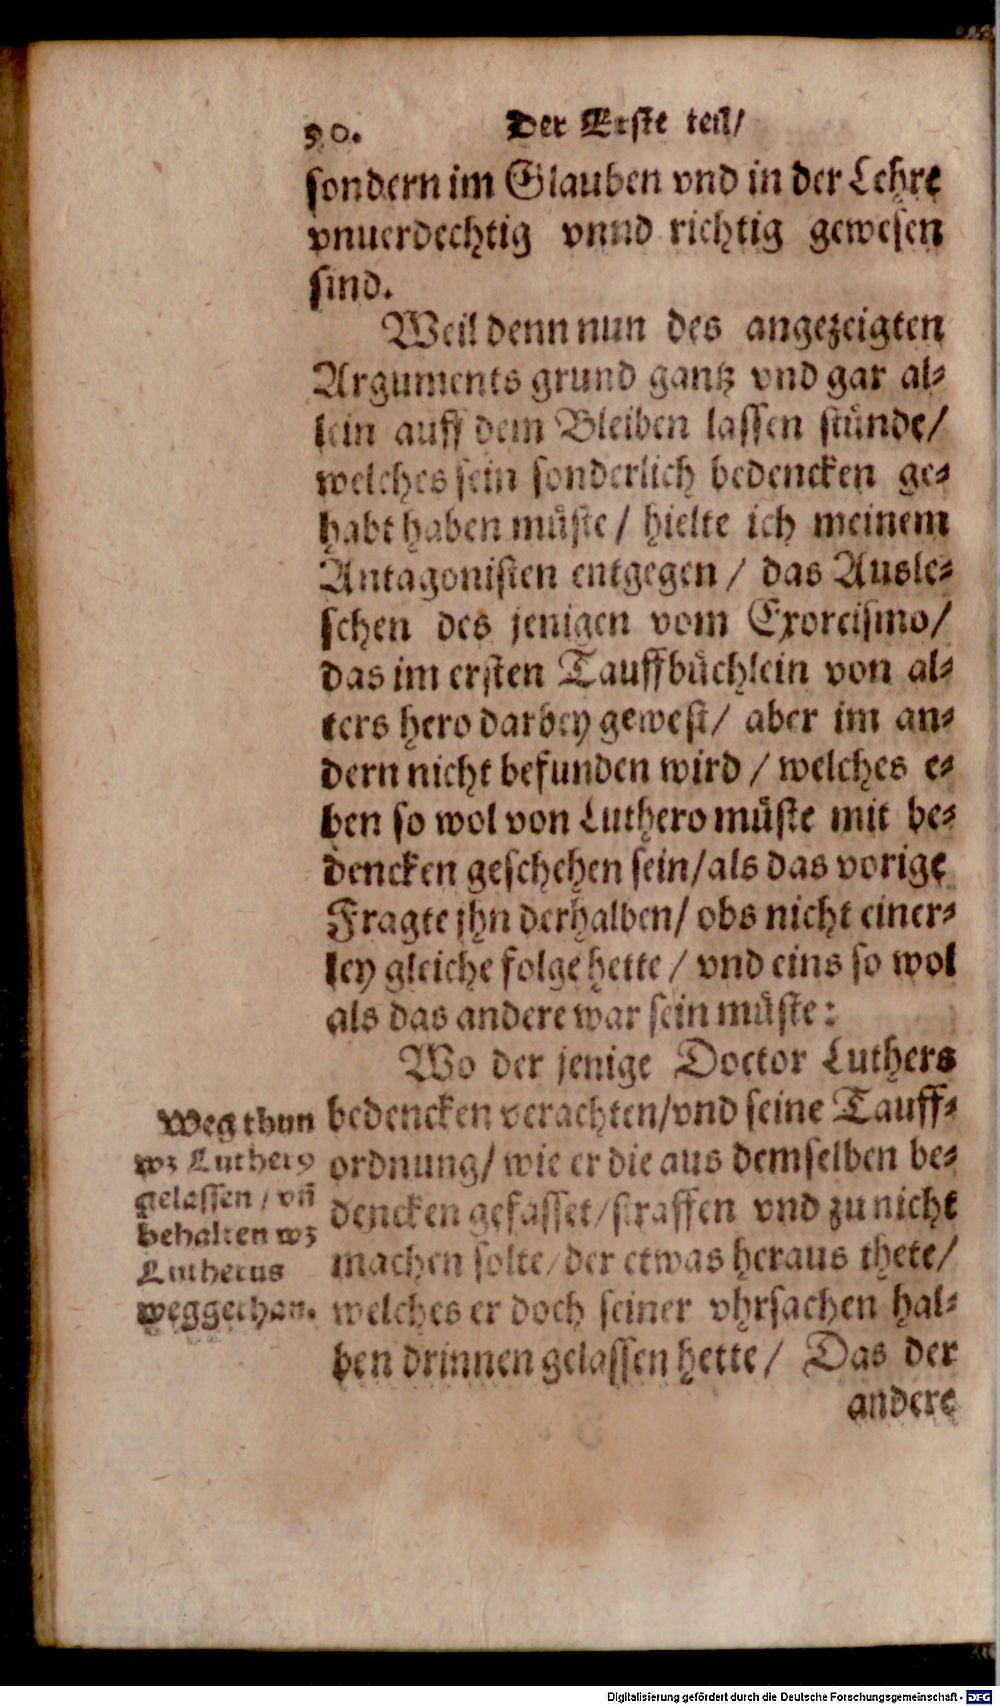 50.
Der Erste teil/
sondern im Glauben vnd in der Lehre
vnuerdechtig vnnd richtig gewesen
sind.
Weil denn nun des angezeigten
Arguments grund gantz vnd gar al⸗
lein auff dem Bleiben lassen stünde/
welches sein sonderlich bedencken ge⸗
habt haben müste / hielte ich meinem
Antagonisten entgegen / das Ausle⸗
schen des jenigen vom Exorcismo/
das im ersten Tauffbüchlein von al⸗
ters hero darbey gewest/ aber im an⸗
dern nicht befunden wird / welches e⸗
ben so wol von Luthero müste mit be⸗
dencken geschehen sein/als das vorige
Fragte jhn derhalben/ obs nicht einer⸗
ley gleiche folge hette / vnd eins so wol
als das andere war sein müste:
Wo der jenige Doctor Luthers
bedencken verachten/vnd seine Tauff⸗
ordnung/ wie er die aus demselben be⸗
dencken gefasset/straffen vnd zu nicht
machen solte/der etwas heraus thete/
welches er doch seiner vhrsachen hal⸗
ben drinnen gelassen hette/ Das der
andere
Weg thun
wz Luther⁹
gelassen / vn̄
behalten wz
Lutherus
weggethan.
Digitalisierung gefördert durch die Deutsche Forschungsgemeinschaft - DFG